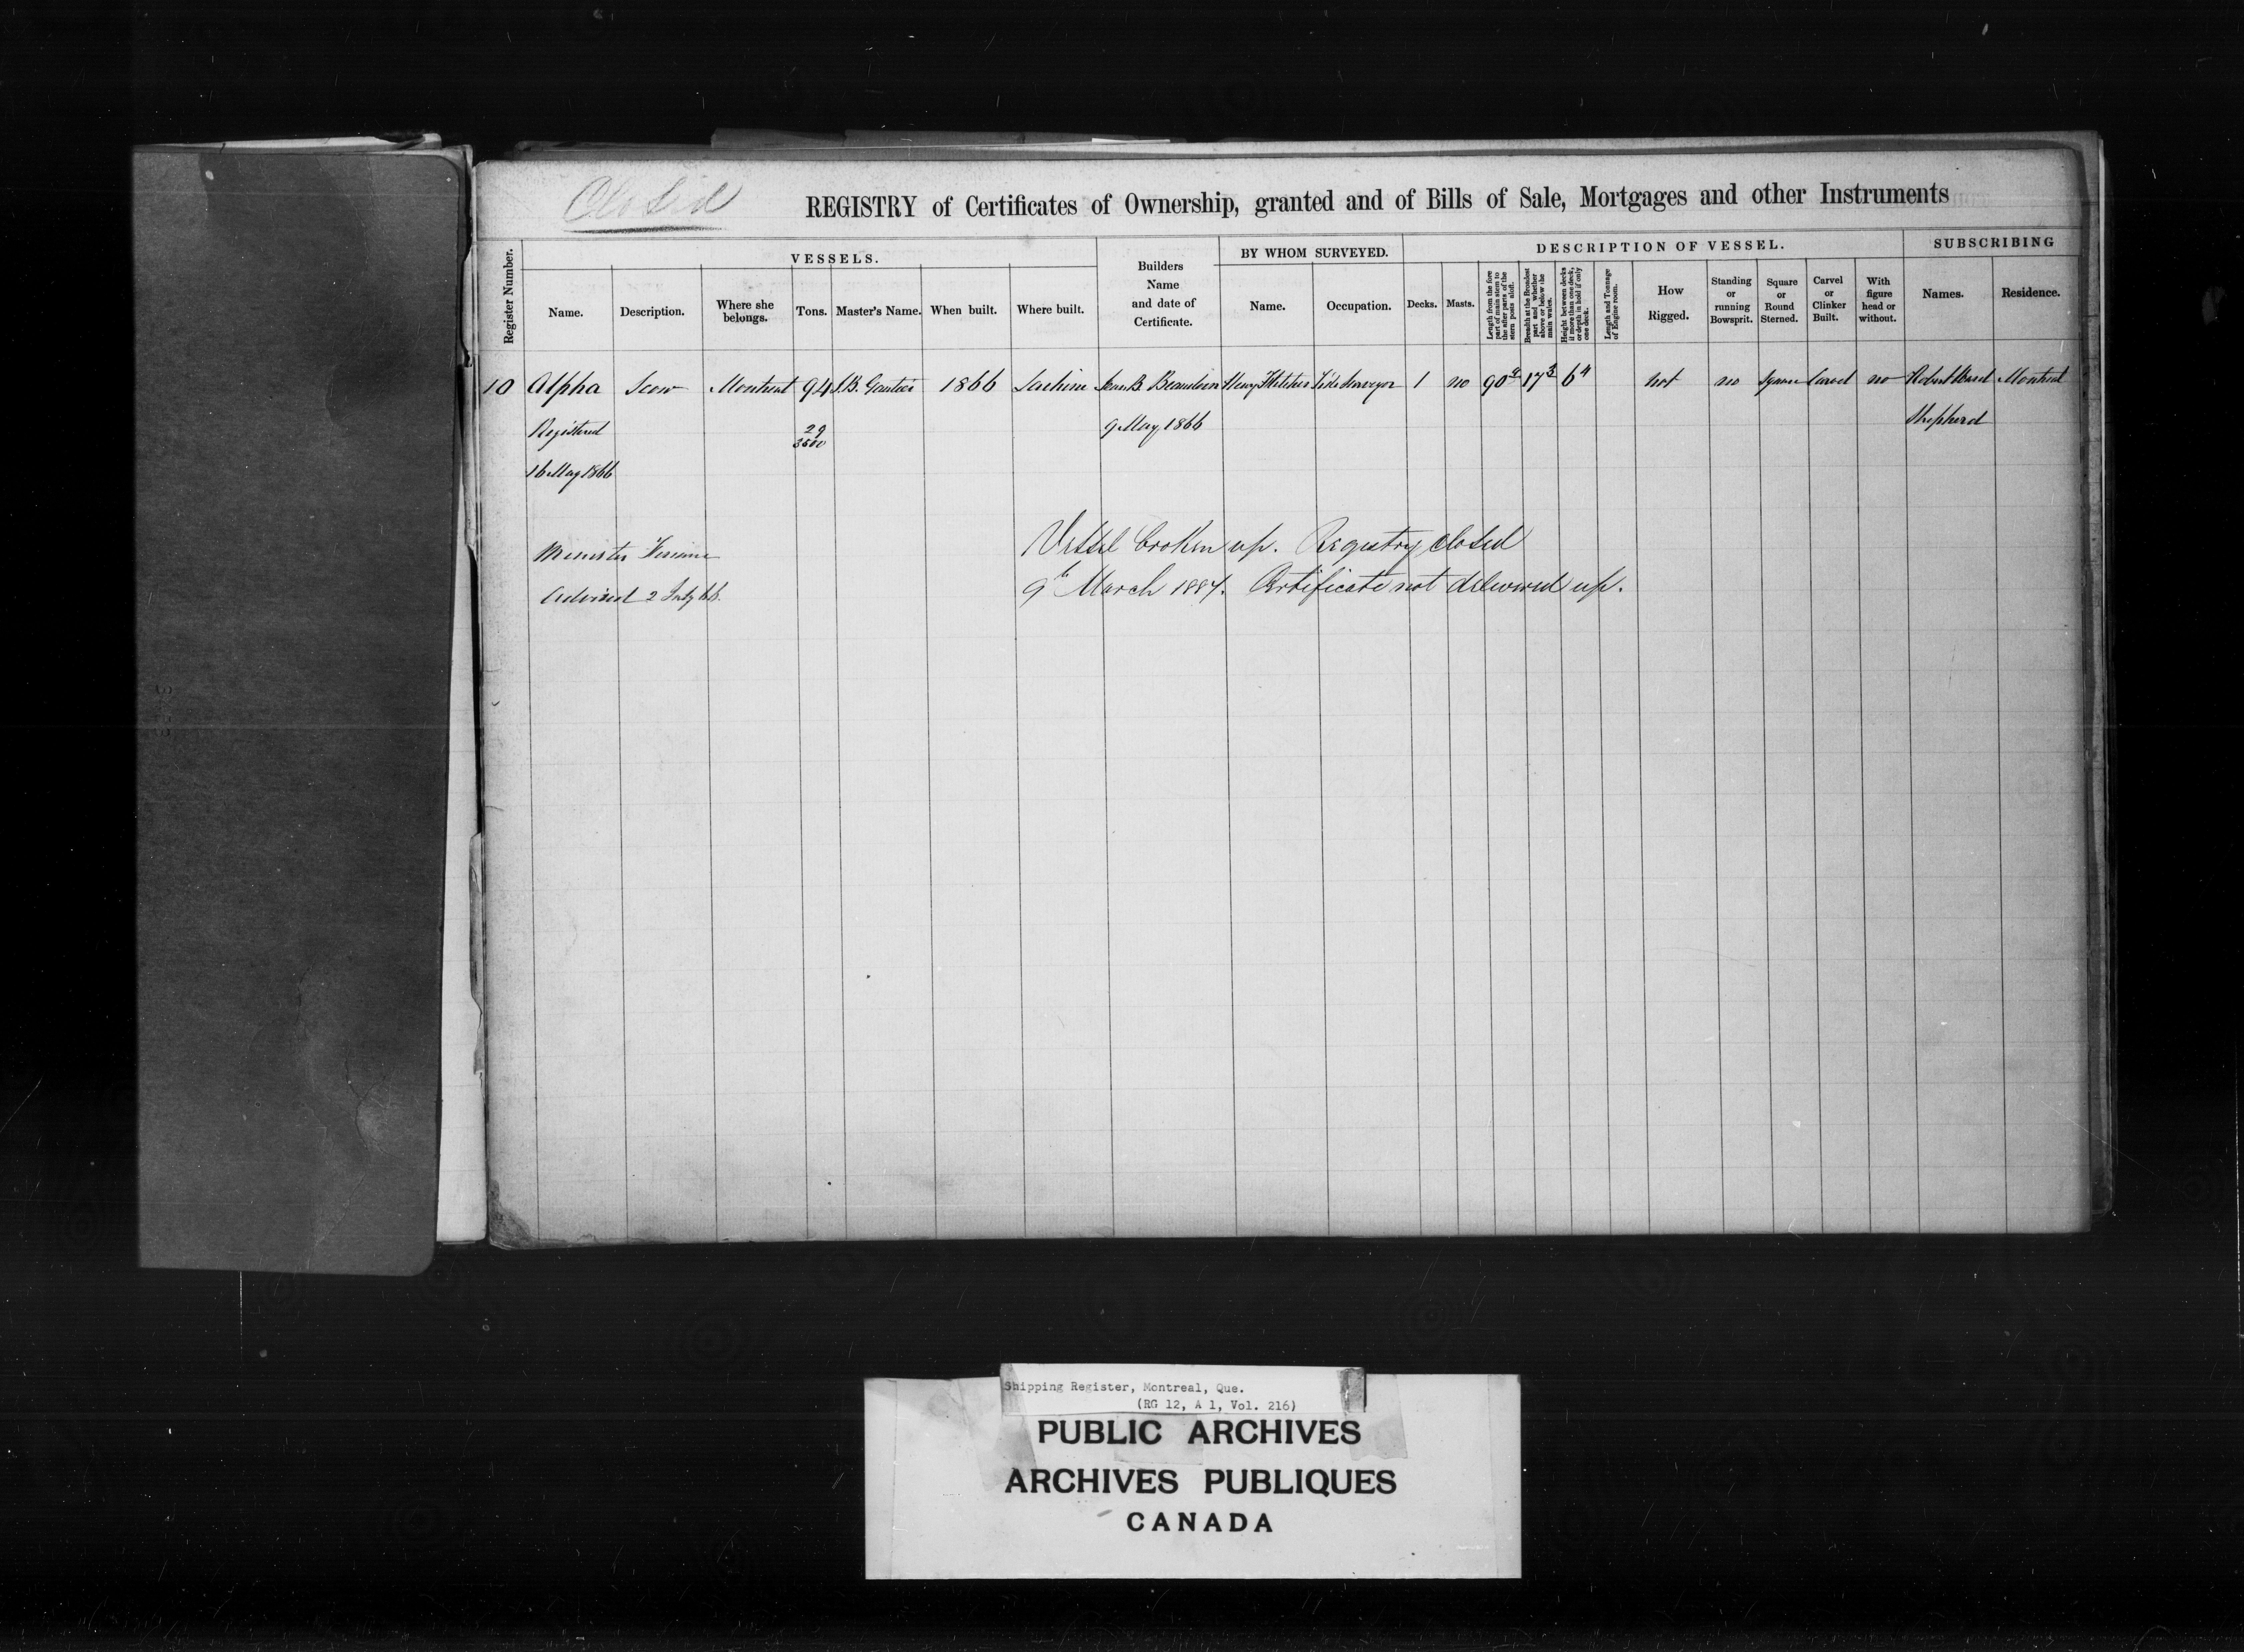 Closed
REGISTRY of Certificates of Ownership, granted and of Bills of Sale, Mortgages and other Instruments
Register Number.
VESSELS.
Name.
Description.
Where she belongs.
Tons.
Master's Name.
When built.
Where built.
Builders Name and date of Certificate.
BY WHOM SURVEYED.
Name.
Occupation.
DESCRIPTION OF VESSEL.
Decks.
Masts.
Length from the fore part of main stem to the after parts of the stern posts aloft.
Breadth at the broadest part and whether above or below the main wales.
Height between decks if more than one deck, or depth in hold if only one deck.
Length and Tonnage of Engine room.
How Rigged.
Standing or running Bowsprit.
Square or Round Sterned.
Carvel or Clinker Built.
With figure head or without.
SUBSCRIBING
Names.
Residence.
10 Alpha Scow Montreal 94 J.B. Gautier 1866 Lachine Jean B. Beaudoin Henry Fletcher Tide Surveyor 1 no 90 17 3 6 4 not no Square Carvel no Robert Ward Montreal
Registered 29 9 May 1866 Shepherd
3500
16 May 1866
Vessel broken up. Registry closed
Minister Finance
9th March 1887. Certificate not delivered up.
Advised 2 July 66.
Shipping Register, Montreal, Que.
(RG 12, A 1, Vol. 216)
PUBLIC ARCHIVES
ARCHIVES PUBLIQUES
CANADA